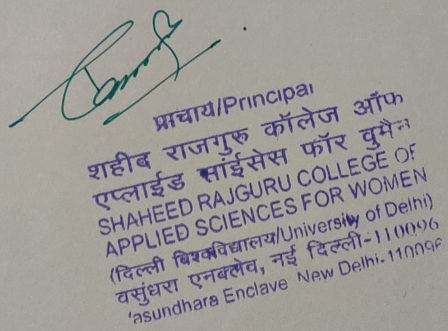 प्राचार्य/Principal
शहीद राजगुरु कॉलेज ऑफ
एप्लाईड साईंसेस फॉर वुमैन
SHAHEED RAJGURU COLLEGE OF
APPLIED SCIENCES FOR WOMEN
(दिल्ली विश्वविद्यालय/University of Delhi)
वसुंधरा एनक्लेव, नई दिल्ली-110096
'asundhara Enclave New Delhi-110096